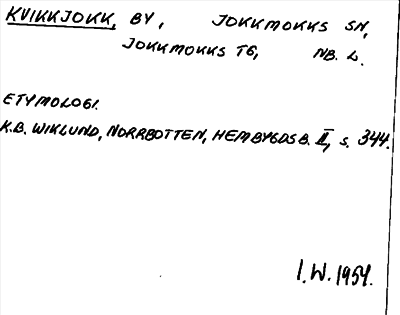 KVIKKJOKK, BY, JOKKMOKKS SN,
JOKKMOKKS TG, NB. L.
ETYMOLOGI.
K.B. WIKLUND, NORRBOTTEN, HEMBYGDSB. II, S. 344.
I.W. 1954.